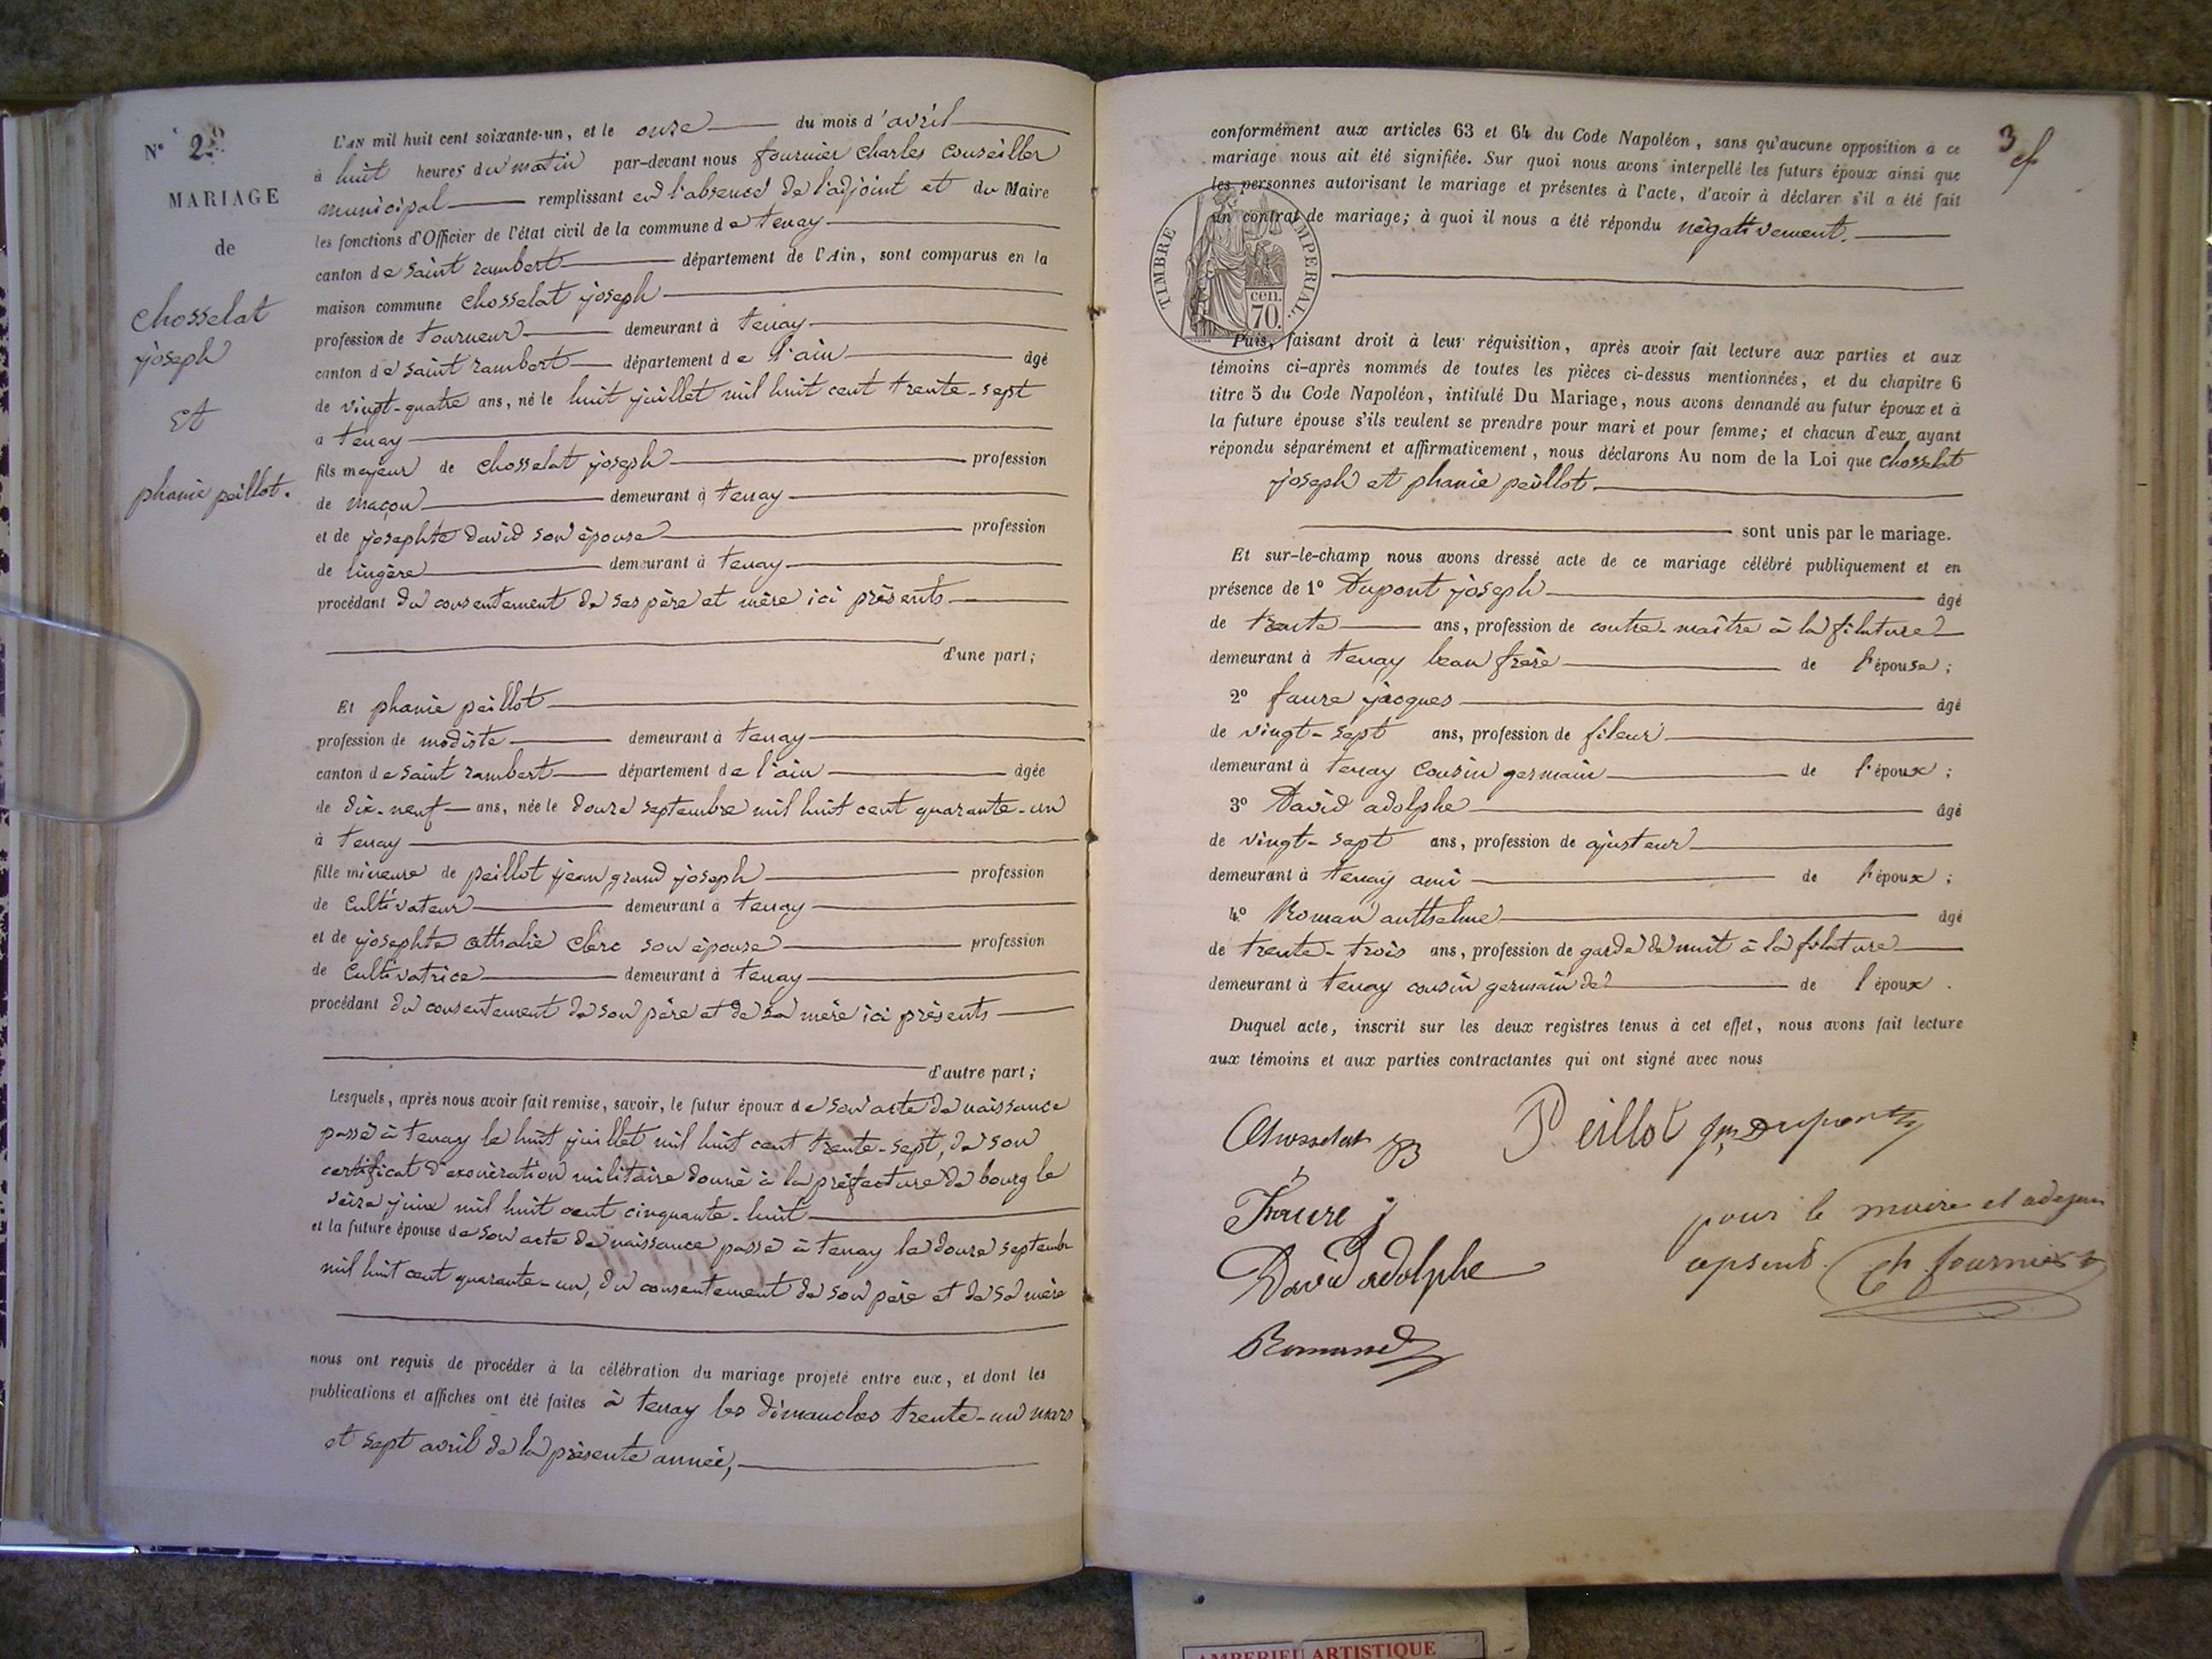 N° 2
MARIAGE
de
chosselat
joseph
Et
phanie peillot.
L'AN mil huit cent soixante-un, et le onze du mois d'avril
à huit heures du matin par-devant nous fournier charles conseiller
municipal remplissant en l'absence de l'adjoint et du Maire
les fonctions d'Officier de l'état civil de la commune de tenay
canton de saint rambert département de l'Ain, sont comparus en la
maison commune chosselat joseph
profession de tourneur demeurant à tenay
canton de saint rambert département de l'ain âgé
de vingt-quatre ans, né le huit juillet mil huit cent trente-sept
à tenay
fils majeur de chosselat joseph profession
de maçon demeurant à tenay
et de josephte david son épouse profession
de lingère demeurant à tenay
procédant du consentement de ses père et mère ici présents
d'une part;
Et phanie peillot
profession de modiste demeurant à tenay
canton de saint rambert département de l'ain âgée
de dix-neuf ans, née le douze septembre mil huit cent quarante-un
à tenay
fille mineure de peillot jean grand joseph profession
de cultivateur demeurant à tenay
et de josephte atthalie clerc son épouse profession
de cultivatrice demeurant à tenay
procédant du consentement de son père et de sa mère ici présents
d'autre part;
Lesquels, après nous avoir fait remise, savoir, le futur époux de son acte de naissance
passé à tenay le huit juillet mil huit cent trente-sept, de son
certificat d'exonération militaire donné à la préfecture de bourg le
seize juin mil huit cent cinquante-huit
et la future épouse de son acte de naissance passé à tenay le douze septembre
mil huit cent quarante-un, du consentement de son père et de sa mère
nous ont requis de procéder à la célébration du mariage projeté entre eux, et dont les
publications et affiches ont été faites à tenay les dimanches trente-un mars
et sept avril de la présente année,
3
conformément aux articles 63 et 64 du Code Napoléon, sans qu'aucune opposition à ce
mariage nous ait été signifiée. Sur quoi nous avons interpellé les futurs époux ainsi que
les personnes autorisant le mariage et présentes à l'acte, d'avoir à déclarer s'il a été fait
un contrat de mariage; à quoi il nous a été répondu négativement.
TIMBRE IMPERIAL.
cen.
70.
Puis, faisant droit à leur réquisition, après avoir fait lecture aux parties et aux
témoins ci-après nommés de toutes les pièces ci-dessus mentionnées, et du chapitre 6
titre 5 du Code Napoléon, intitulé Du Mariage, nous avons demandé au futur époux et à
la future épouse s'ils veulent se prendre pour mari et pour femme; et chacun d'eux ayant
répondu séparément et affirmativement, nous déclarons Au nom de la Loi que chosselat
joseph et phanie peillot
sont unis par le mariage.
Et sur-le-champ nous avons dressé acte de ce mariage célébré publiquement et en
présence de 1° Dupont joseph âgé
de trente ans, profession de contre-maître à la filature
demeurant à tenay beau frère de l'épouse;
2° faure jacques âgé
de vingt-sept ans, profession de fileur
demeurant à tenay cousin germain de l'époux;
3° David adolphe âgé
de vingt-sept ans, profession de ajusteur
demeurant à tenay ami de l'époux;
4° Roman anthelme âgé
de trente-trois ans, profession de garde de nuit à la filature
demeurant à tenay cousin germain de de l'époux.
Duquel acte, inscrit sur les deux registres tenus à cet effet, nous avons fait lecture
aux témoins et aux parties contractantes qui ont signé avec nous
Chosselat Peillot Dupont
Faure j
David adolphe
Romand
pour le maire et adejoin
apsend. Ch fournier
AMBERIEU ARTISTIQUE